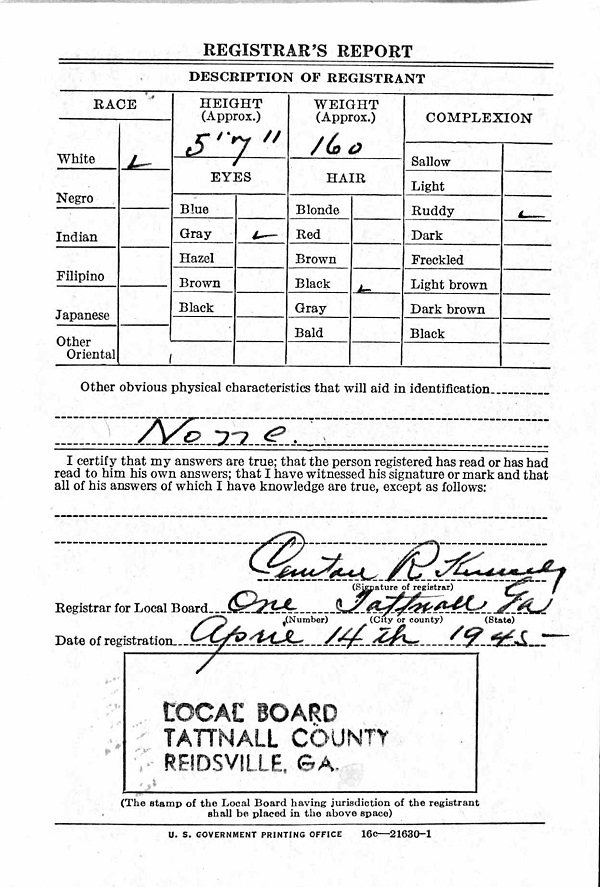 REGISTRAR'S REPORT
DESCRIPTION OF REGISTRANT
RACE
HEIGHT
(Approx.)
WEIGHT
(Approx.)
COMPLEXION
5' 7"
160
White
EYES
HAIR
Sallow
Light
Negro
Blue
Blonde
Ruddy
Indian
Gray
Red
Dark
Hazel
Brown
Freckled
Filipino
Brown
Black
Light brown
Japanese
Black
Gray
Dark brown
Other
Oriental
Bald
Black
Other obvious physical characteristics that will aid in identification
None.
I certify that my answers are true; that the person registered has read or has had
read to him his own answers; that I have witnessed his signature or mark and that
all of his answers of which I have knowledge are true, except as follows:
R.
(Signature of registrar)
Registrar for Local Board One Tattnall Ga
(Number) (City or county) (State)
Date of registration April 14th 1945
LOCAL BOARD
TATTNALL COUNTY
REIDSVILLE, GA.
(The stamp of the Local Board having jurisdiction of the registrant
shall be placed in the above space)
U. S. GOVERNMENT PRINTING OFFICE 16c—21630-1